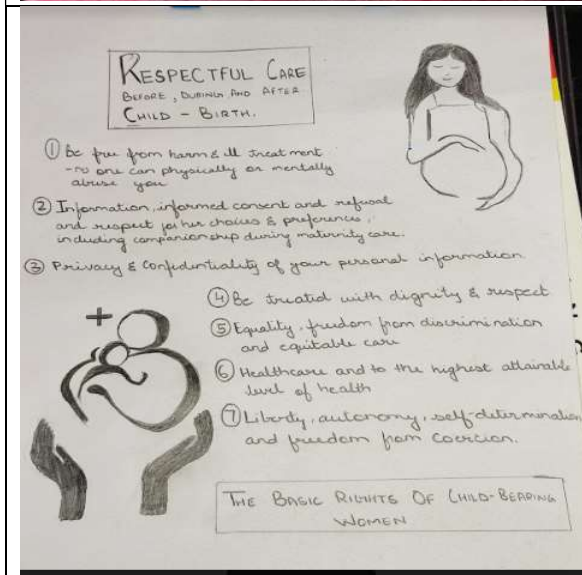 RESPECTFUL CARE
BEFORE, DURING AND AFTER
CHILD - BIRTH.
① Be free from harm & ill treatment
- no one can physically or mentally
abuse you
② Information, informed consent and refusal
and respect for her choices & preferences,
including companionship during maternity care.
③ Privacy & Confidentiality of your personal information.
④ Be treated with dignity & respect
⑤ Equality, freedom from discrimination
and equitable care
⑥ Healthcare and to the highest attainable
level of health
⑦ Liberty, autonomy, self-determination
and freedom from coercion.
THE BASIC RIGHTS OF CHILD-BEARING
WOMEN